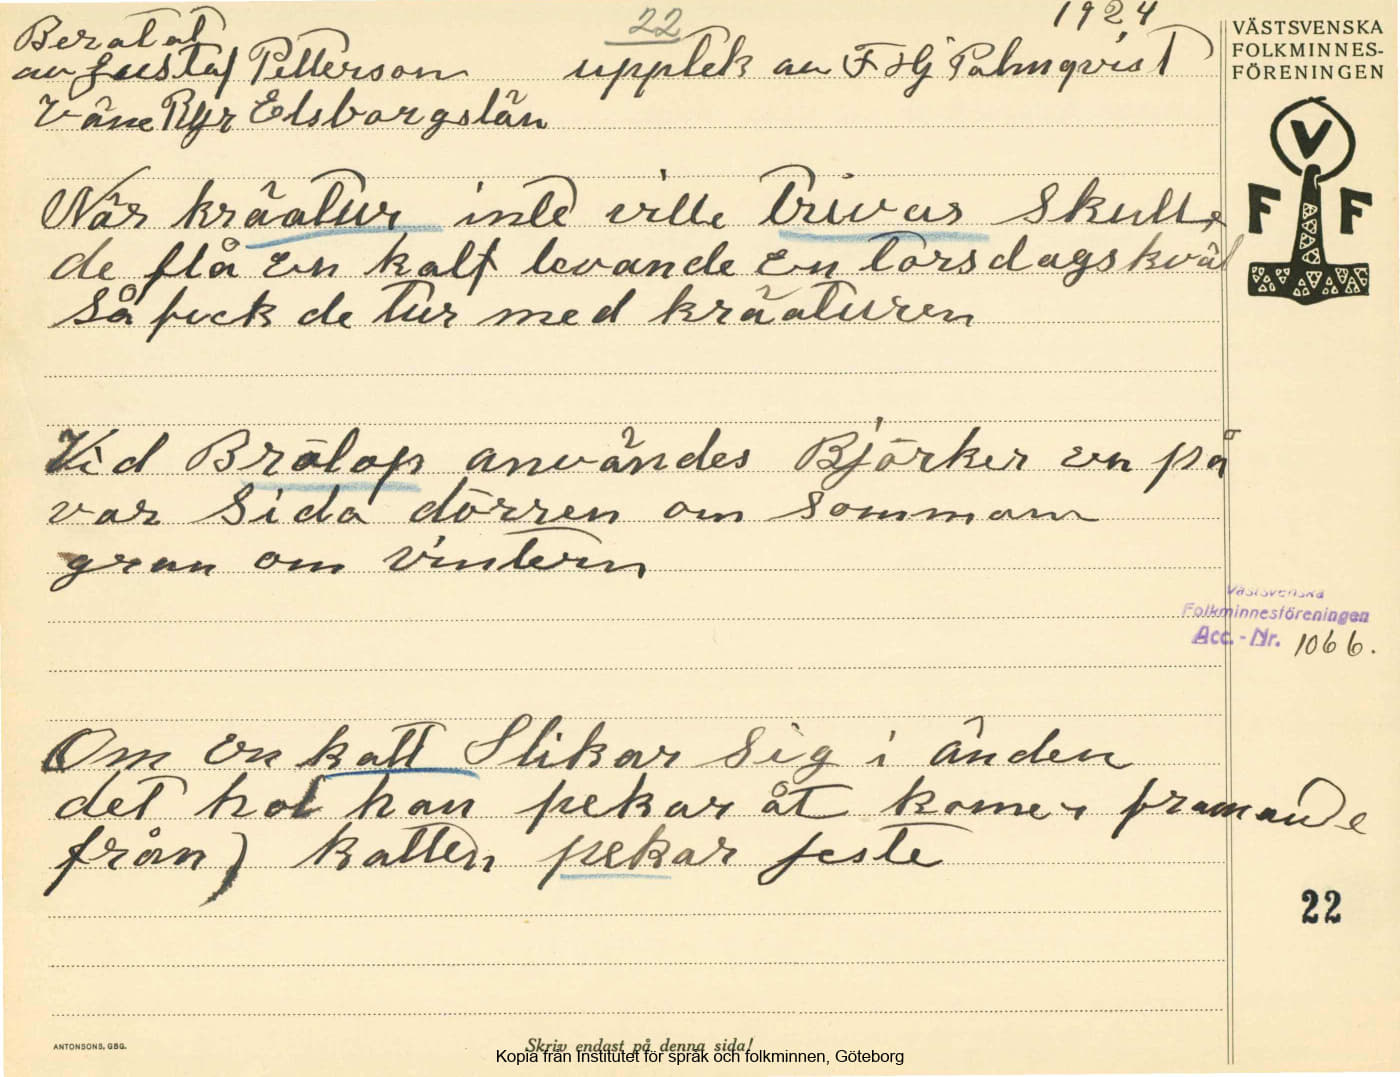 22
1924
Beratat
av Gustaf Petterson upptek av F Hj Palmqvist
Väne Ryr Elsborgslän
VÄSTSVENSKA
FOLKMINNES-
FÖRENINGEN
V
F F
När kräatur inte ville trivas skulle
de flå en kalf levande en torsdagskväl
så feck de tur med kräaturen
Vid Brölop användes Björker en på
var Sida dörren om Sommarn
gran om vintern
Västsvenska
Folkminnesföreningen
Acc.-Nr. 1066.
Om en katt Slikar sig i änden
det hol han pekar åt komer framande
från) katten pekar feste
22
ANTONSONS, GBG.
Skriv endast på denna sida!
Kopia från Institutet för språk och folkminnen, Göteborg